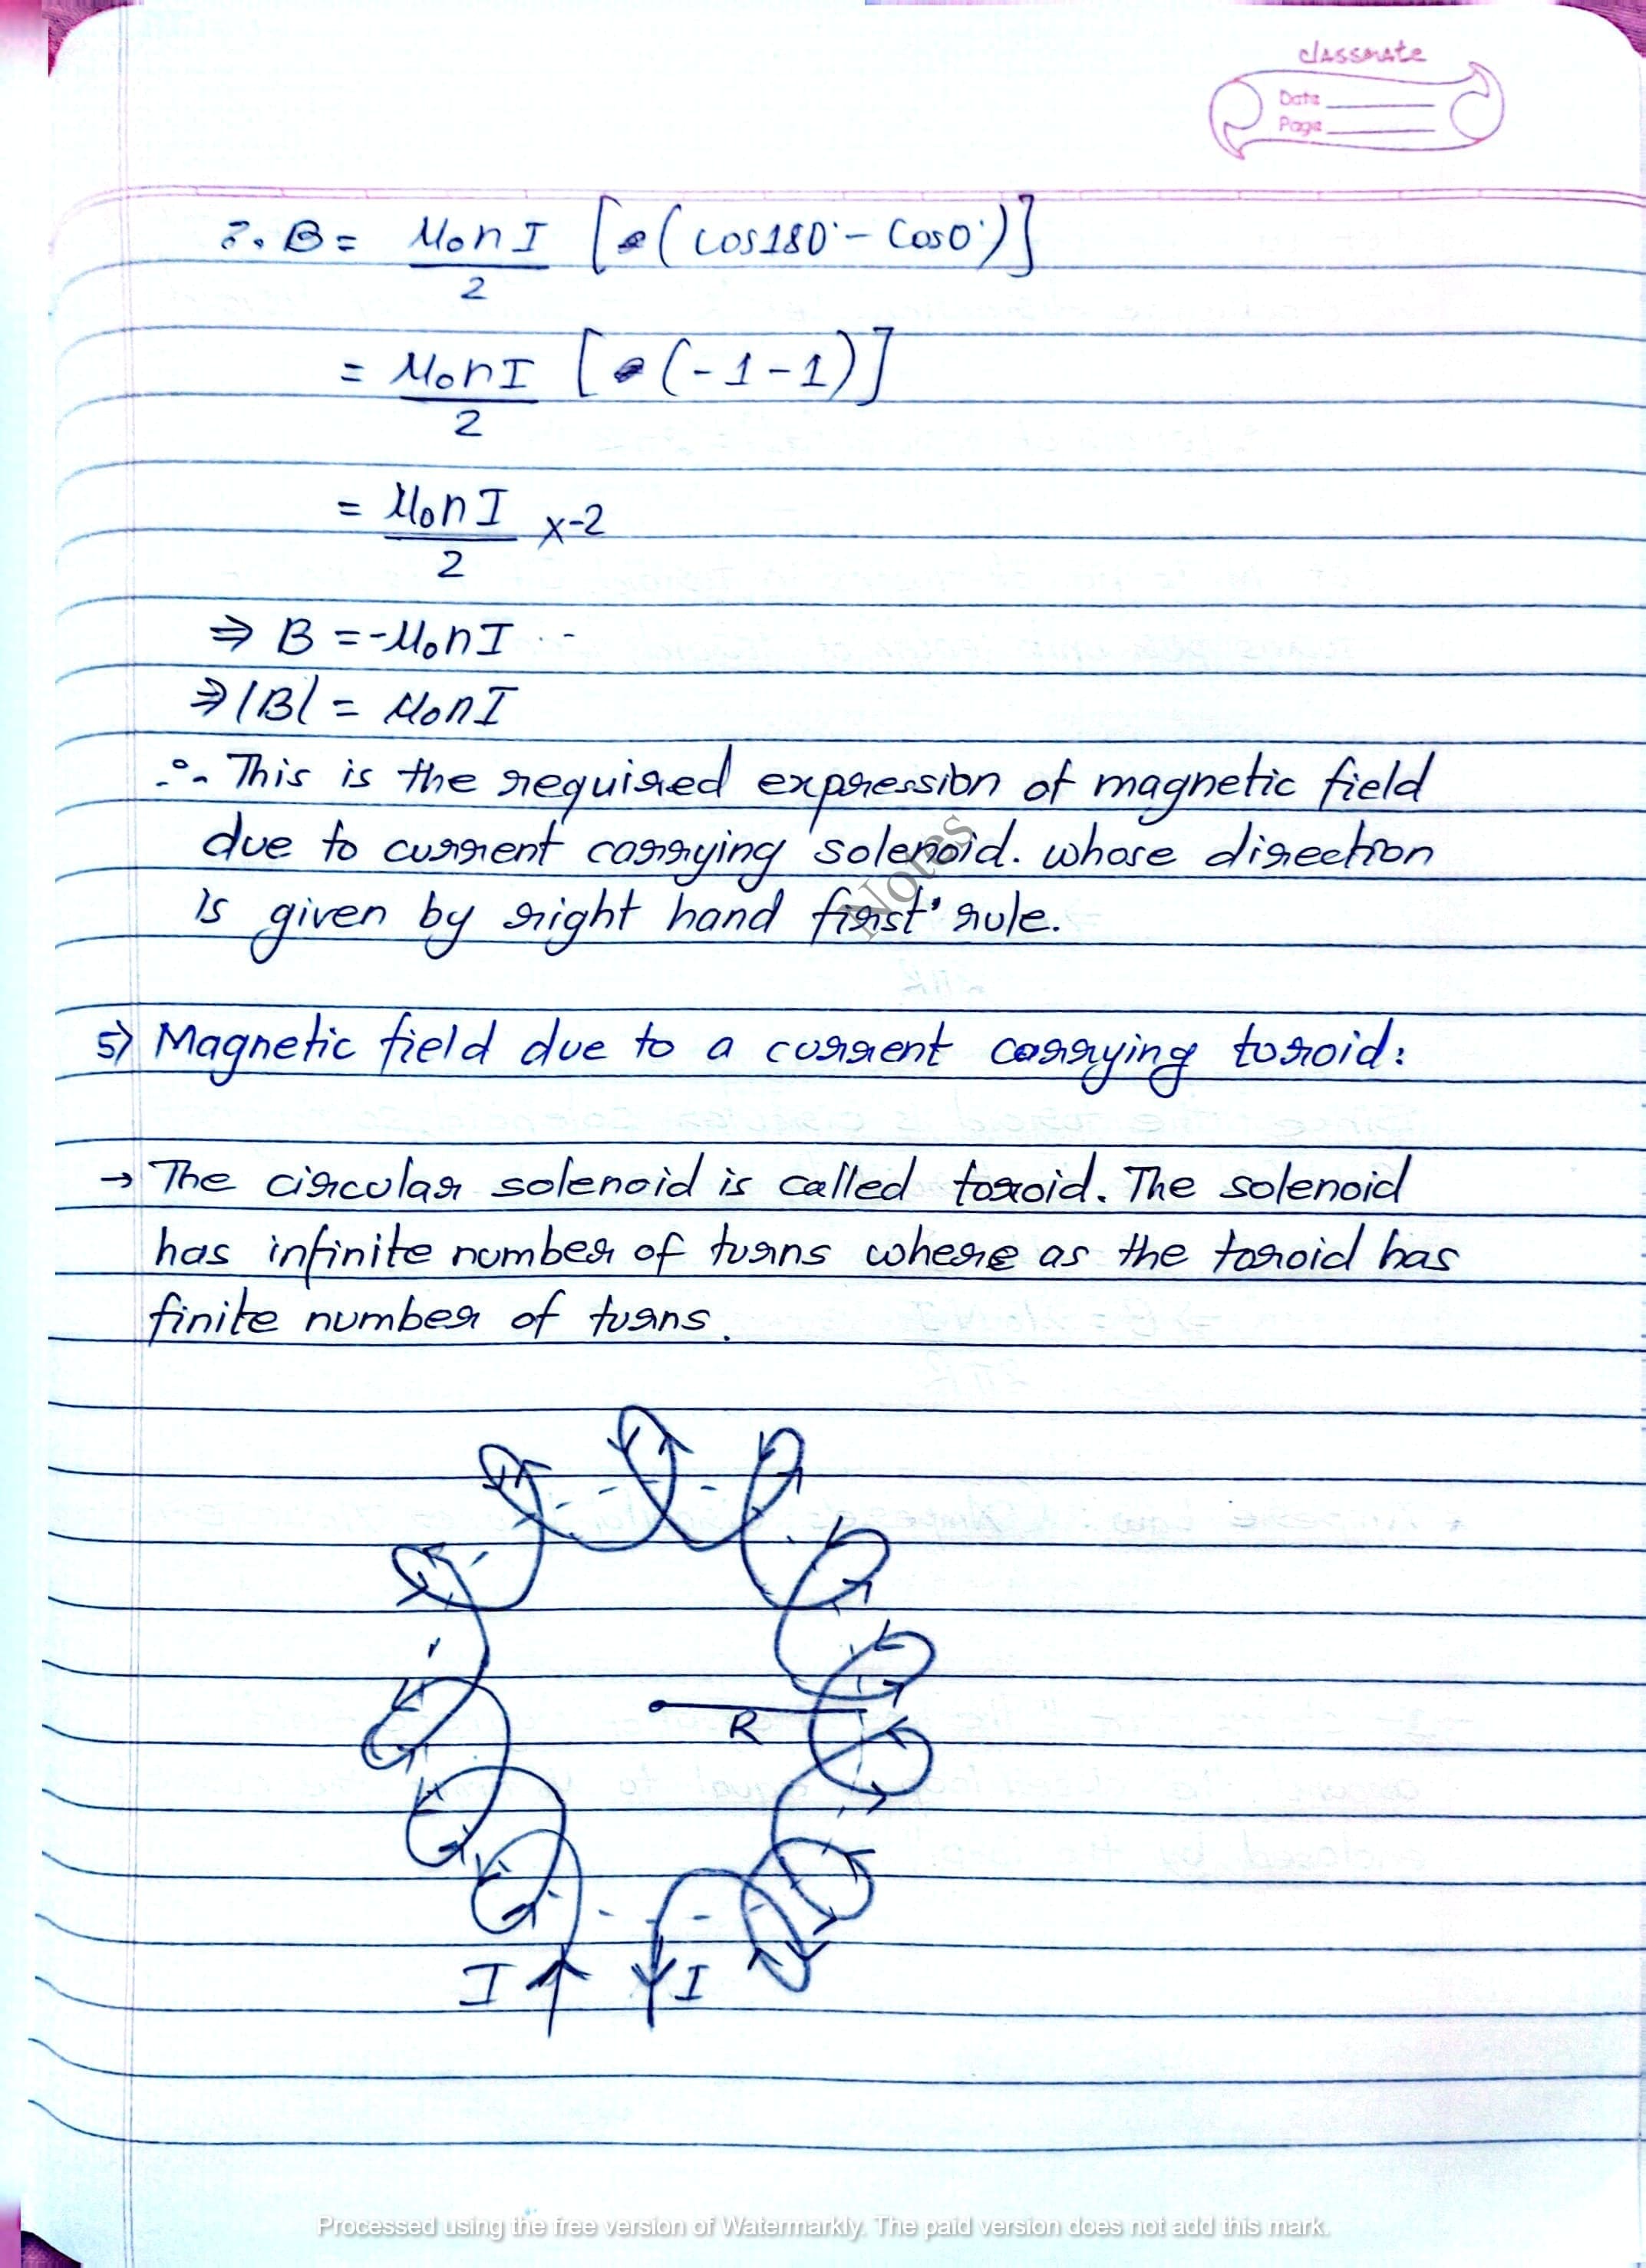 classmate
Date
Page
∴ B = μ₀nI/2 [(cos180° - cos0°)]
= μ₀nI/2 [(-1-1)]
= μ₀nI/2 x-2
⇒ B = -μ₀nI
⇒ |B| = μ₀nI
∴ This is the required expression of magnetic field
due to current carrying solenoid. whose direction
is given by right hand first rule.
Notes
5) Magnetic field due to a current carrying toroid:
→ The circular solenoid is called toroid. The solenoid
has infinite number of turns where as the toroid has
finite number of turns.
R
I I
Processed using the free version of Watermarkly. The paid version does not add this mark.